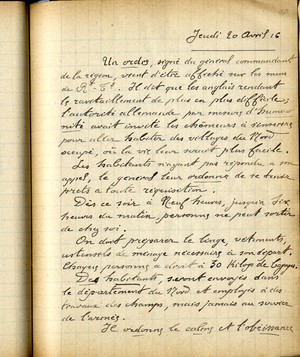 Jeudi 20 Avril 16
Un ordre, signé du général commandant
de la région, vient d'être affiché sur les murs
de R. - T. Il dit que les anglais rendent
le ravitaillement de plus en plus difficile;
l'autorité allemande, par mesure d'huma
nité avait invité les chômeurs à s'inscrire
pour aller habiter des villages du Nord
occupé, où la vie leur serait plus facile.
Les habitants n'ayant pas répondu à son
appel, le général leur ordonne de se tenir
prêts à toute réquisition.
Dès ce soir à Neuf heures, jusqu'à six
heures du matin, personne ne peut sortir
de chez soi.
On doit préparer le linge, vêtements,
ustensiles de ménage nécessaires à son départ.
Chaque personne a droit à 30 Kilogs de bagages.
Des habitants, seront envoyés dans
le département du Nord et employés à des
travaux des champs, mais jamais au service
de l'armée.
Il ordonne le calme et l'obéissance